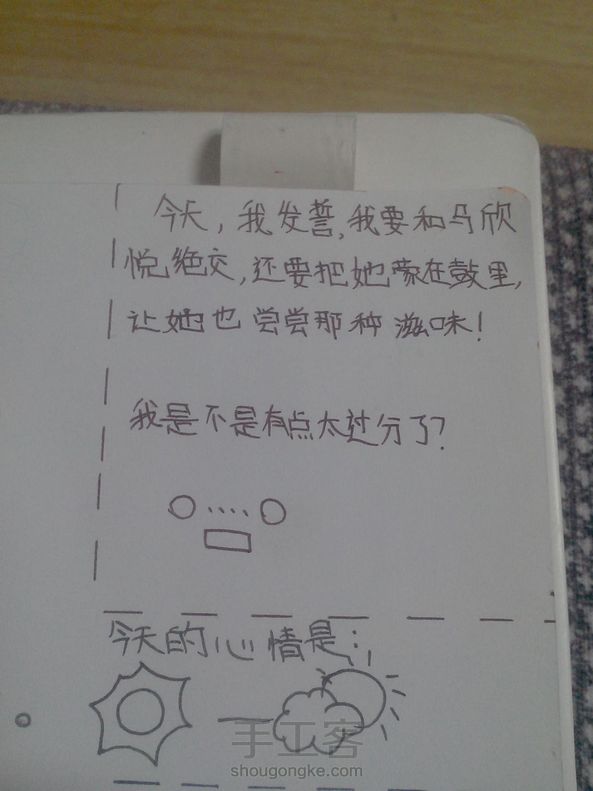 今天，我发誓，我要和马欣
悦绝交，还要把她蒙在鼓里，
让她也尝尝那种滋味！
我是不是有点太过分了？
今天的心情是：
手工客
shougongke.com